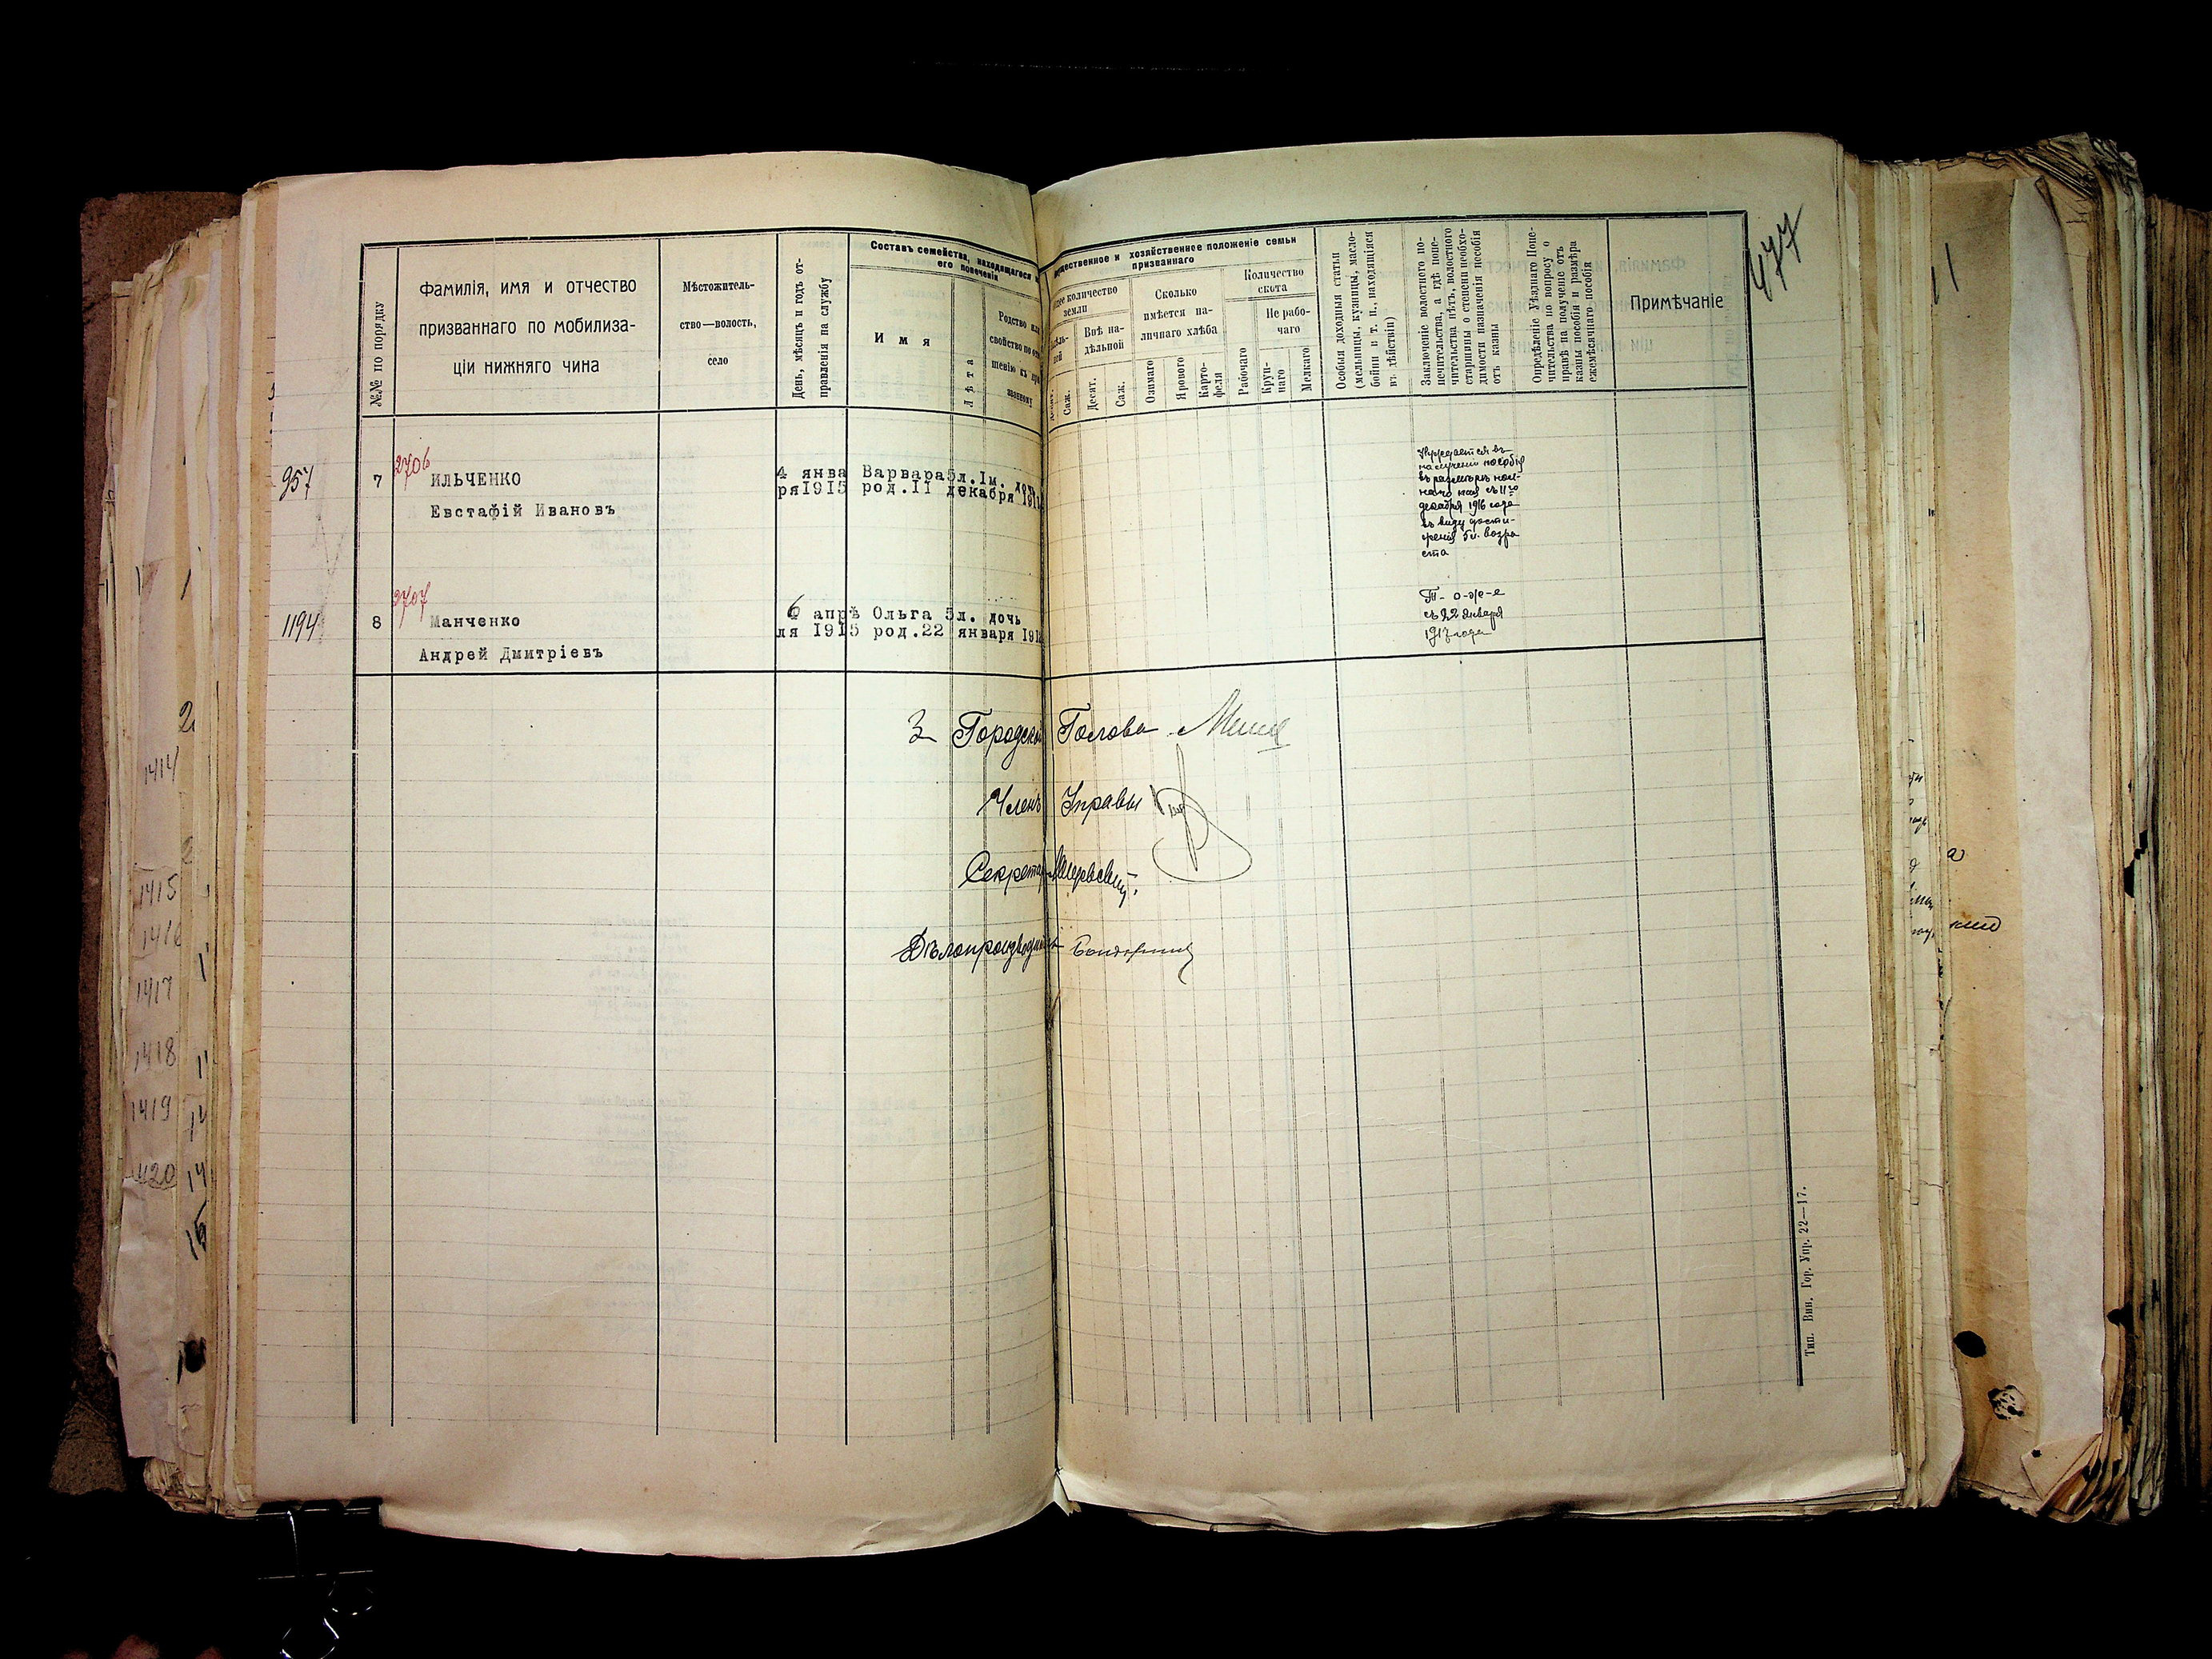 477
№№ по порядку
Фамилія, имя и отчество
призваннаго по мобилиза-
ціи нижняго чина
Мѣстожитель-
ство—волость,
село
День, мѣсяцъ и годъ от-
правленія на службу
Составъ семейства, находящагося
его попеченіи
Имя
Лѣта
Родство или
свойство по отно-
шенію къ при-
званному
имущественное и хозяйственное положеніе семьи
призваннаго
количество
земли
Внѣ на-
дѣльной
Десят.
Саж.
Десят.
Саж.
Сколько
имѣется на-
личнаго хлѣба
Озимаго
Ярового
Карто-
феля
Количество
скота
Рабочаго
Не рабо-
чаго
Круп-
наго
Мелкаго
Особыя доходныя статьи
(мельницы, кузницы, масло-
бойни и т. п., находящіяся
въ дѣйствіи)
Заключеніе волостного по-
печительства, а гдѣ попе-
чительства нѣтъ, волостного
старшины о степени необхо-
димости назначенія пособія
отъ казны
Опредѣленіе Уѣзднаго Попе-
чительства по вопросу о
правѣ на полученіе отъ
казны пособія и размѣра
ежемѣсячнаго пособія
Примѣчаніе
957
7
2706
ИЛЬЧЕНКО
Евстафій Ивановъ
4 янва
ря1915
Варвара5л.1м. доч
род.11 декабря 191
Нуждается въ
получении пособія
въ размѣрѣ
съ 11го
декабря 1916 года
въ виду дости-
женія 5 л. возра
ста
1194
8
2707
Манченко
Андрей Дмитріевъ
6 апрѣ
ля 1915
Ольга 5л. дочь
род.22 января 191
Т-о-ж-е
съ 22 января
1917 года
З Городской Голова
Членъ Управы
Секретарь
Дѣлопроизводитель
Тип. Вин. Гор. Упр. 22—17.
1414
1415
1416
1417
1418
1419
1420